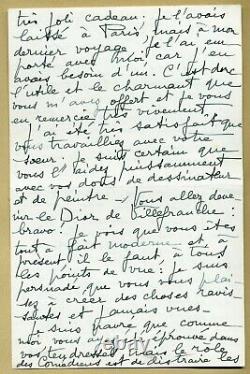 très joli cadeau, je l'avais
laissé à Paris, mais à mon
dernier voyage, je l'ai em
porté avec moi car j'en
avais besoin d'un. C'est donc
l'utile et le charmant que
vous m'avez offert et je vous
en remercie très vivement
J'ai été très satisfait que
vous travailliez avec votre
soeur. Je suis certain que
vous l'aidez puissamment
avec vos dons de dessinateur
et de peintre — Vous allez deve
nir le Dior de Villefranche :
bravo! Je vois que vous êtes
tout à fait moderne et, à
présent il le faut, à tous
les points de vue : je suis
persuadé que vous vous plai
sez à créer des choses ravis
santes et jamais vues —
Je suis navré que comme
moi vous ayiez éprouvé dans
vos tendresses mais le rôle
des comédiens est de distraire les
hbyre.com